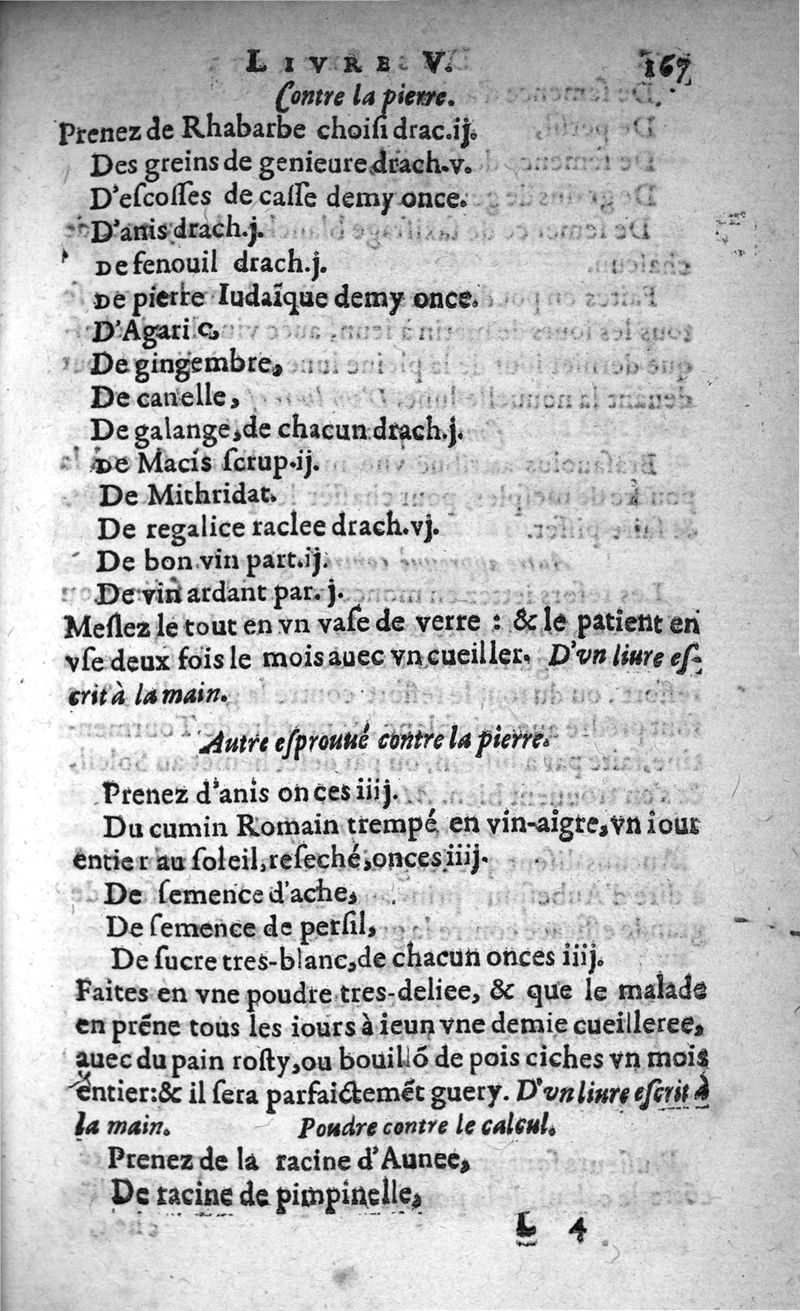 LIVRE V. 167
Contre la pierre.
Prenez de Rhabarbe choisi drac.ij.
Des greins de genieure drach.v.
D'eſcoſſes de caſſe demy once.
D'anis drach.j.
De fenouil drach.j.
De pierre Iudaïque demy once.
D'Agaric,
De gingembre,
De canelle,
De galange, de chacun drach.j.
De Macis ſcrup.ij.
De Mithridat.
De regalice raclee drach.vj.
De bon vin part.ij.
De vin ardant par. j.
Meſlez le tout en vn vaſe de verre : & le patient en
vſe deux fois le mois auec vn cueiller. D'vn liure eſ-
crit à la main.
Autre eſprouué contre la pierre.
Prenez d'anis onces iiij.
Du cumin Romain trempé en vin-aigre, vn iour
entier au ſoleil, reſeché, onces iiij.
De ſemence d'ache,
De ſemence de perſil,
De ſucre tres-blanc, de chacun onces iiij.
Faites en vne poudre tres-deliee, & que le malade
en prẽne tous les iours à ieun vne demie cueilleree,
auec du pain roſty, ou bouillõ de pois ciches vn mois
entier: & il ſera parfaictemẽt guery. D'vn liure eſcrit à
la main. Poudre contre le calcul.
Prenez de la racine d'Aunee,
De racine de pimpinelle,
L 4